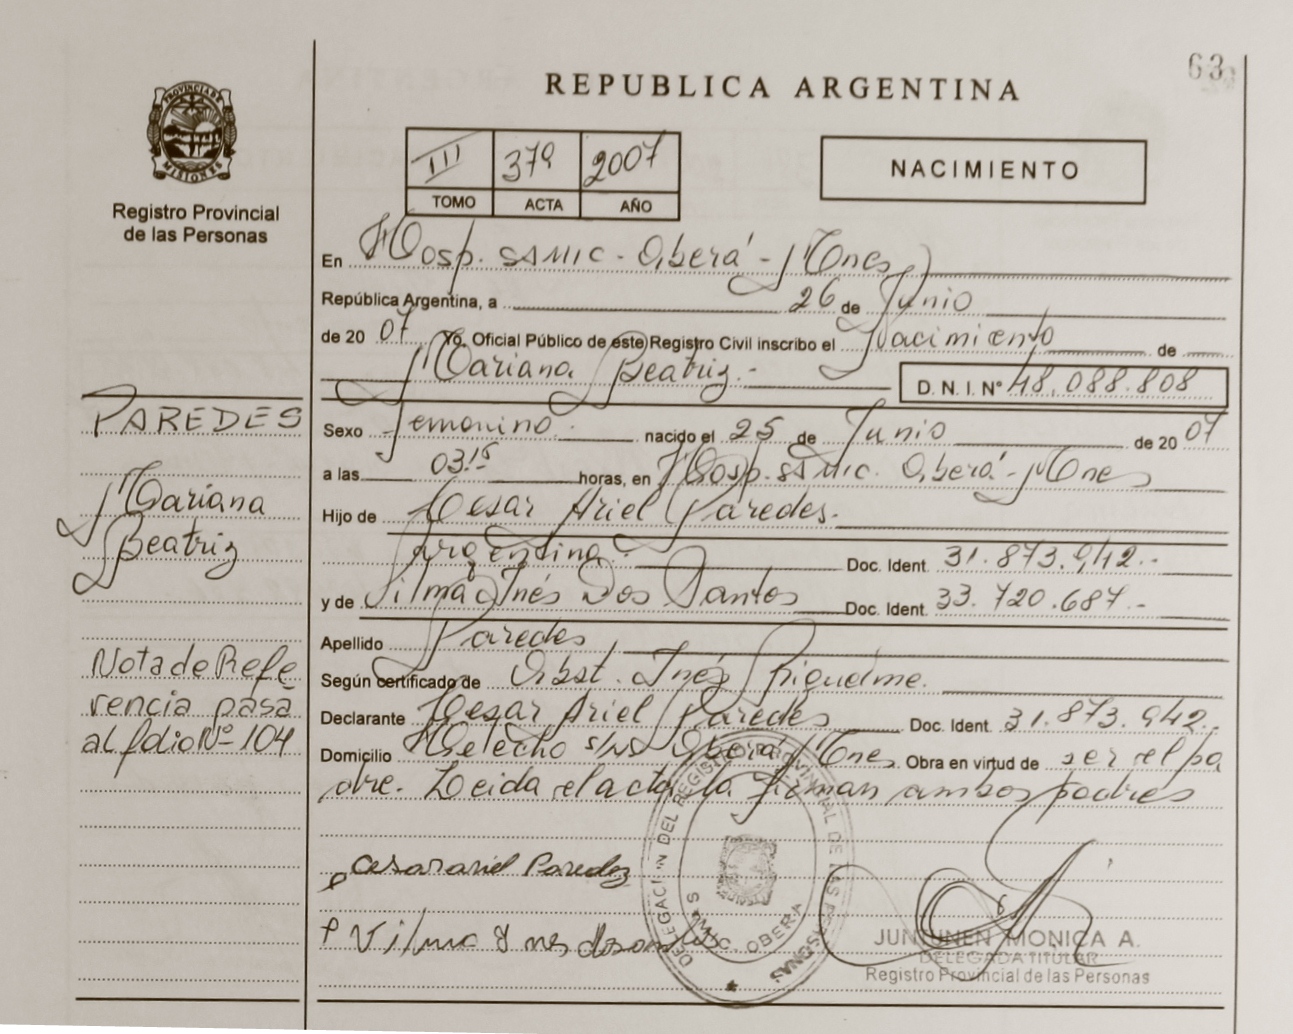 63
REPUBLICA ARGENTINA
PROVINCIA DE MISIONES
Registro Provincial
de las Personas
III 379 2007
TOMO ACTA AÑO
NACIMIENTO
En Hosp. SAMIC - Oberá - Mnes
República Argentina, a 26 de Junio
de 20 07 Yo, Oficial Público de este Registro Civil inscribo el Nacimiento de
Mariana Beatriz.- D. N. I. Nº 48.088.808
Sexo Femenino. nacido el 25 de Junio de 20 07
a las 03.15 horas, en Hosp. SAMIC. Oberá - Mnes
Hijo de Cesar Ariel Paredes.
Argentina - Doc. Ident. 31.873.942.-
y de Vilma Inés Dos Santos Doc. Ident. 33.720.687.-
Apellido Paredes
Según certificado de Obst. Inés Riquelme.
Declarante Cesar Ariel Paredes Doc. Ident. 31.873.942.-
Domicilio Helecho s/nº Oberá Mnes. Obra en virtud de ser el pa
dre. Leida el acta la firman ambos padres
PAREDES
Mariana
Beatriz
Nota de Refe
rencia pasa
al folio Nº 104
cesar ariel Paredez
Vilma Ynes dosantos
DELEGACION DEL REGISTRO PROVINCIAL DE LAS PERSONAS
SAMIC. OBERA
JUNTUNEN MONICA A.
DELEGADA TITULAR
Registro Provincial de las Personas